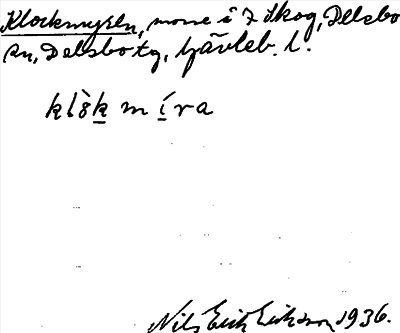 Klockmyren, mosse i 7 Skog, Delsbo
sn, Delsbo tg, Gävleb. l.
klòk míra
Nils Erik Eriksson 1936.